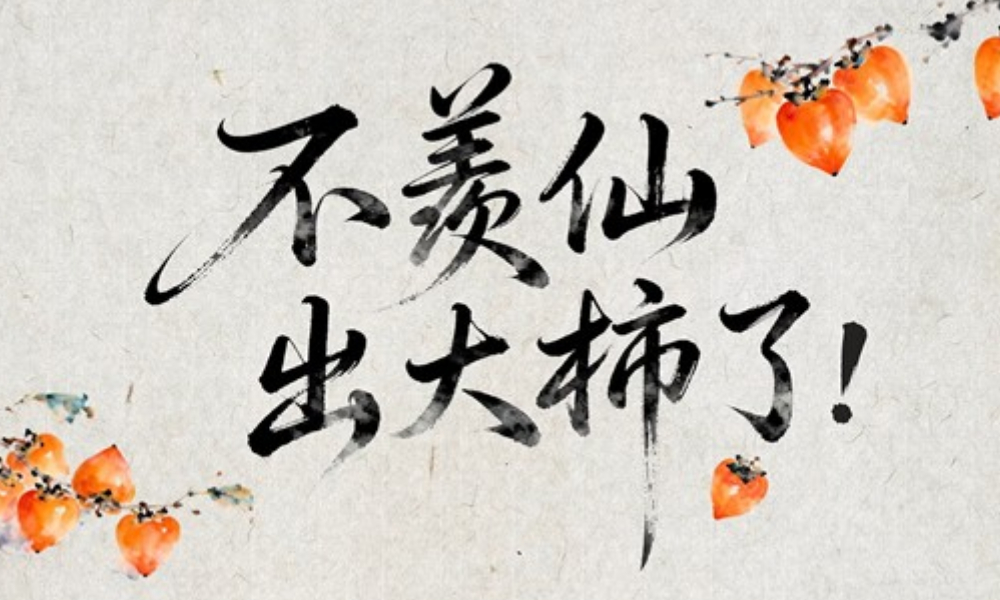 不羡仙
出大柿了!